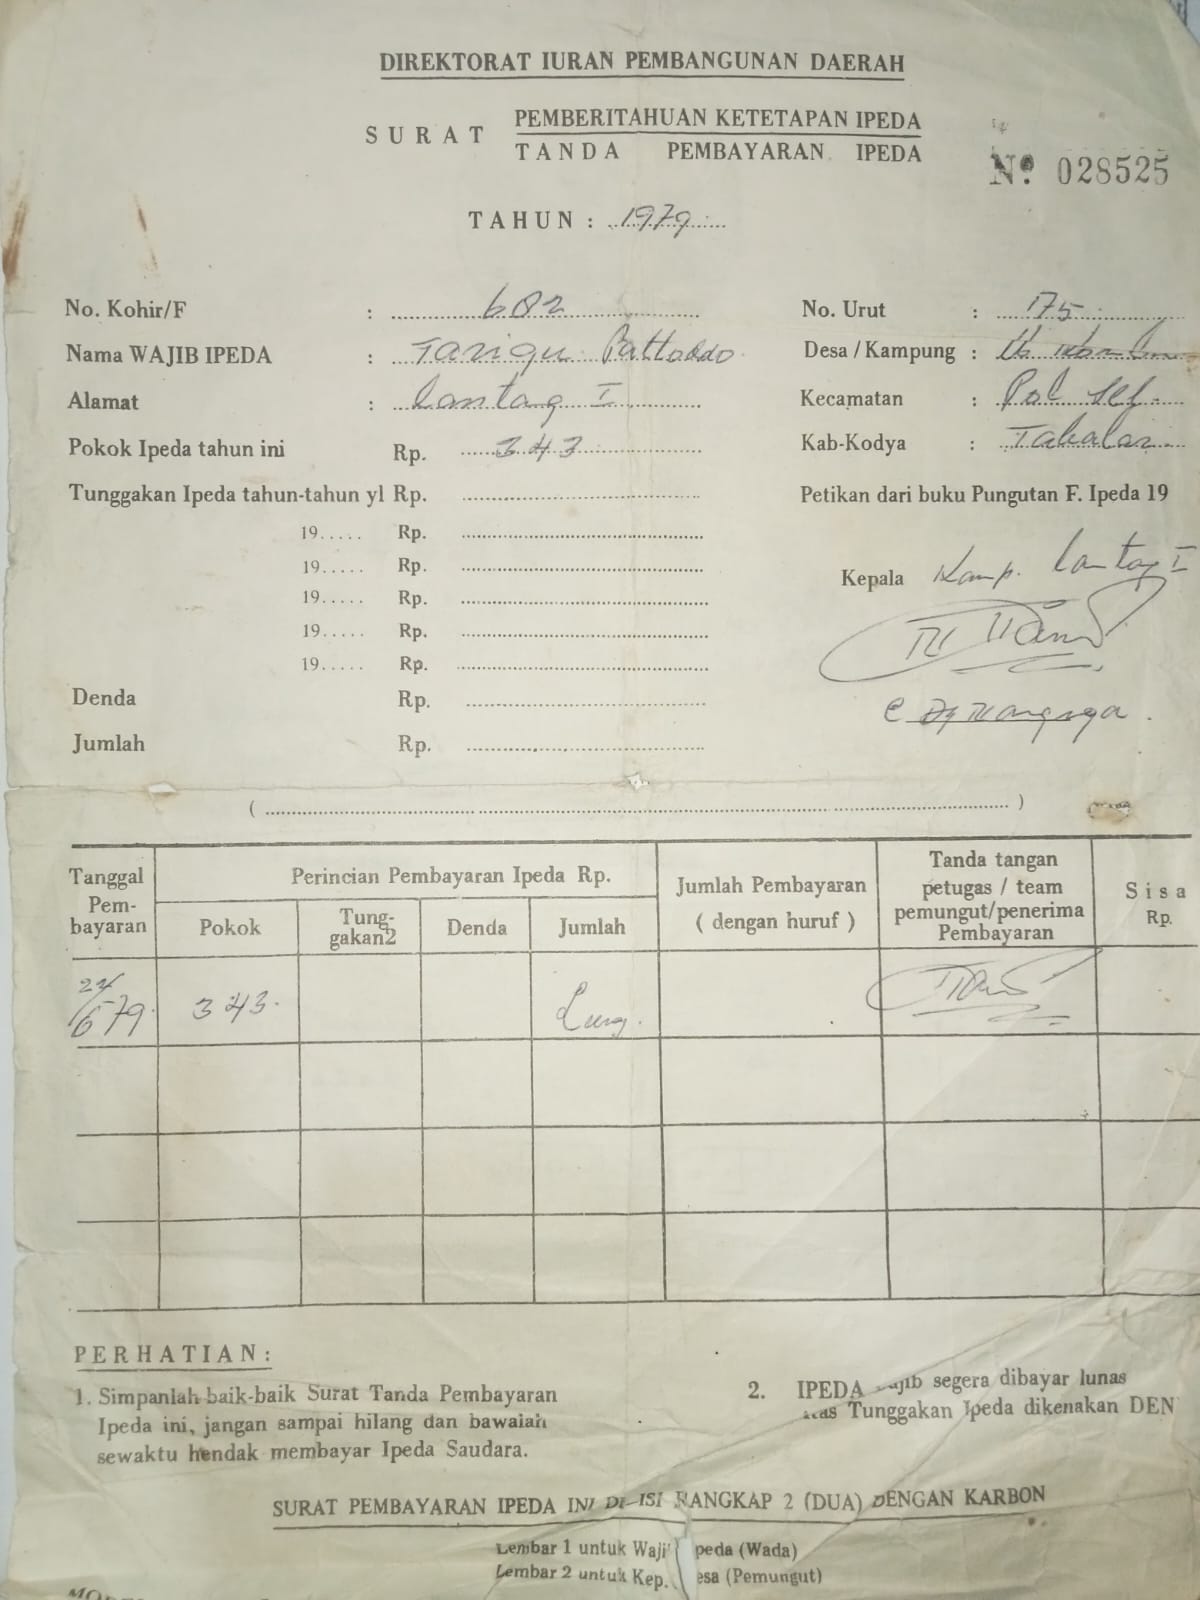 DIREKTORAT IURAN PEMBANGUNAN DAERAH
SURAT PEMBERITAHUAN KETETAPAN IPEDA
TANDA PEMBAYARAN IPEDA
No. 028525
TAHUN : 1979
No. Kohir/F : 602
No. Urut : 175
Nama WAJIB IPEDA : Tarigu Pattoddo
Desa / Kampung :
Alamat : Lantag I
Kecamatan : Pol Sel
Pokok Ipeda tahun ini Rp. 343
Kab-Kodya : Takalar
Tunggakan Ipeda tahun-tahun yl Rp.
Petikan dari buku Pungutan F. Ipeda 19
19..... Rp.
19..... Rp.
Kepala Kamp. Lantag I
19..... Rp.
19..... Rp.
19..... Rp.
Denda Rp.
Jumlah Rp.
Tanggal Pem-bayaran
Perincian Pembayaran Ipeda Rp.
Pokok
Tung-gakan2
Denda
Jumlah
Jumlah Pembayaran
( dengan huruf )
Tanda tangan
petugas / team
pemungut/penerima
Pembayaran
Sisa
Rp.
24/6-79. 343.
PERHATIAN :
1. Simpanlah baik-baik Surat Tanda Pembayaran
Ipeda ini, jangan sampai hilang dan bawalah
sewaktu hendak membayar Ipeda Saudara.
2. IPEDA wajib segera dibayar lunas
atas Tunggakan Ipeda dikenakan DEN
SURAT PEMBAYARAN IPEDA INI DI-ISI RANGKAP 2 (DUA) DENGAN KARBON
Lembar 1 untuk Waji peda (Wada)
Lembar 2 untuk Kep. esa (Pemungut)